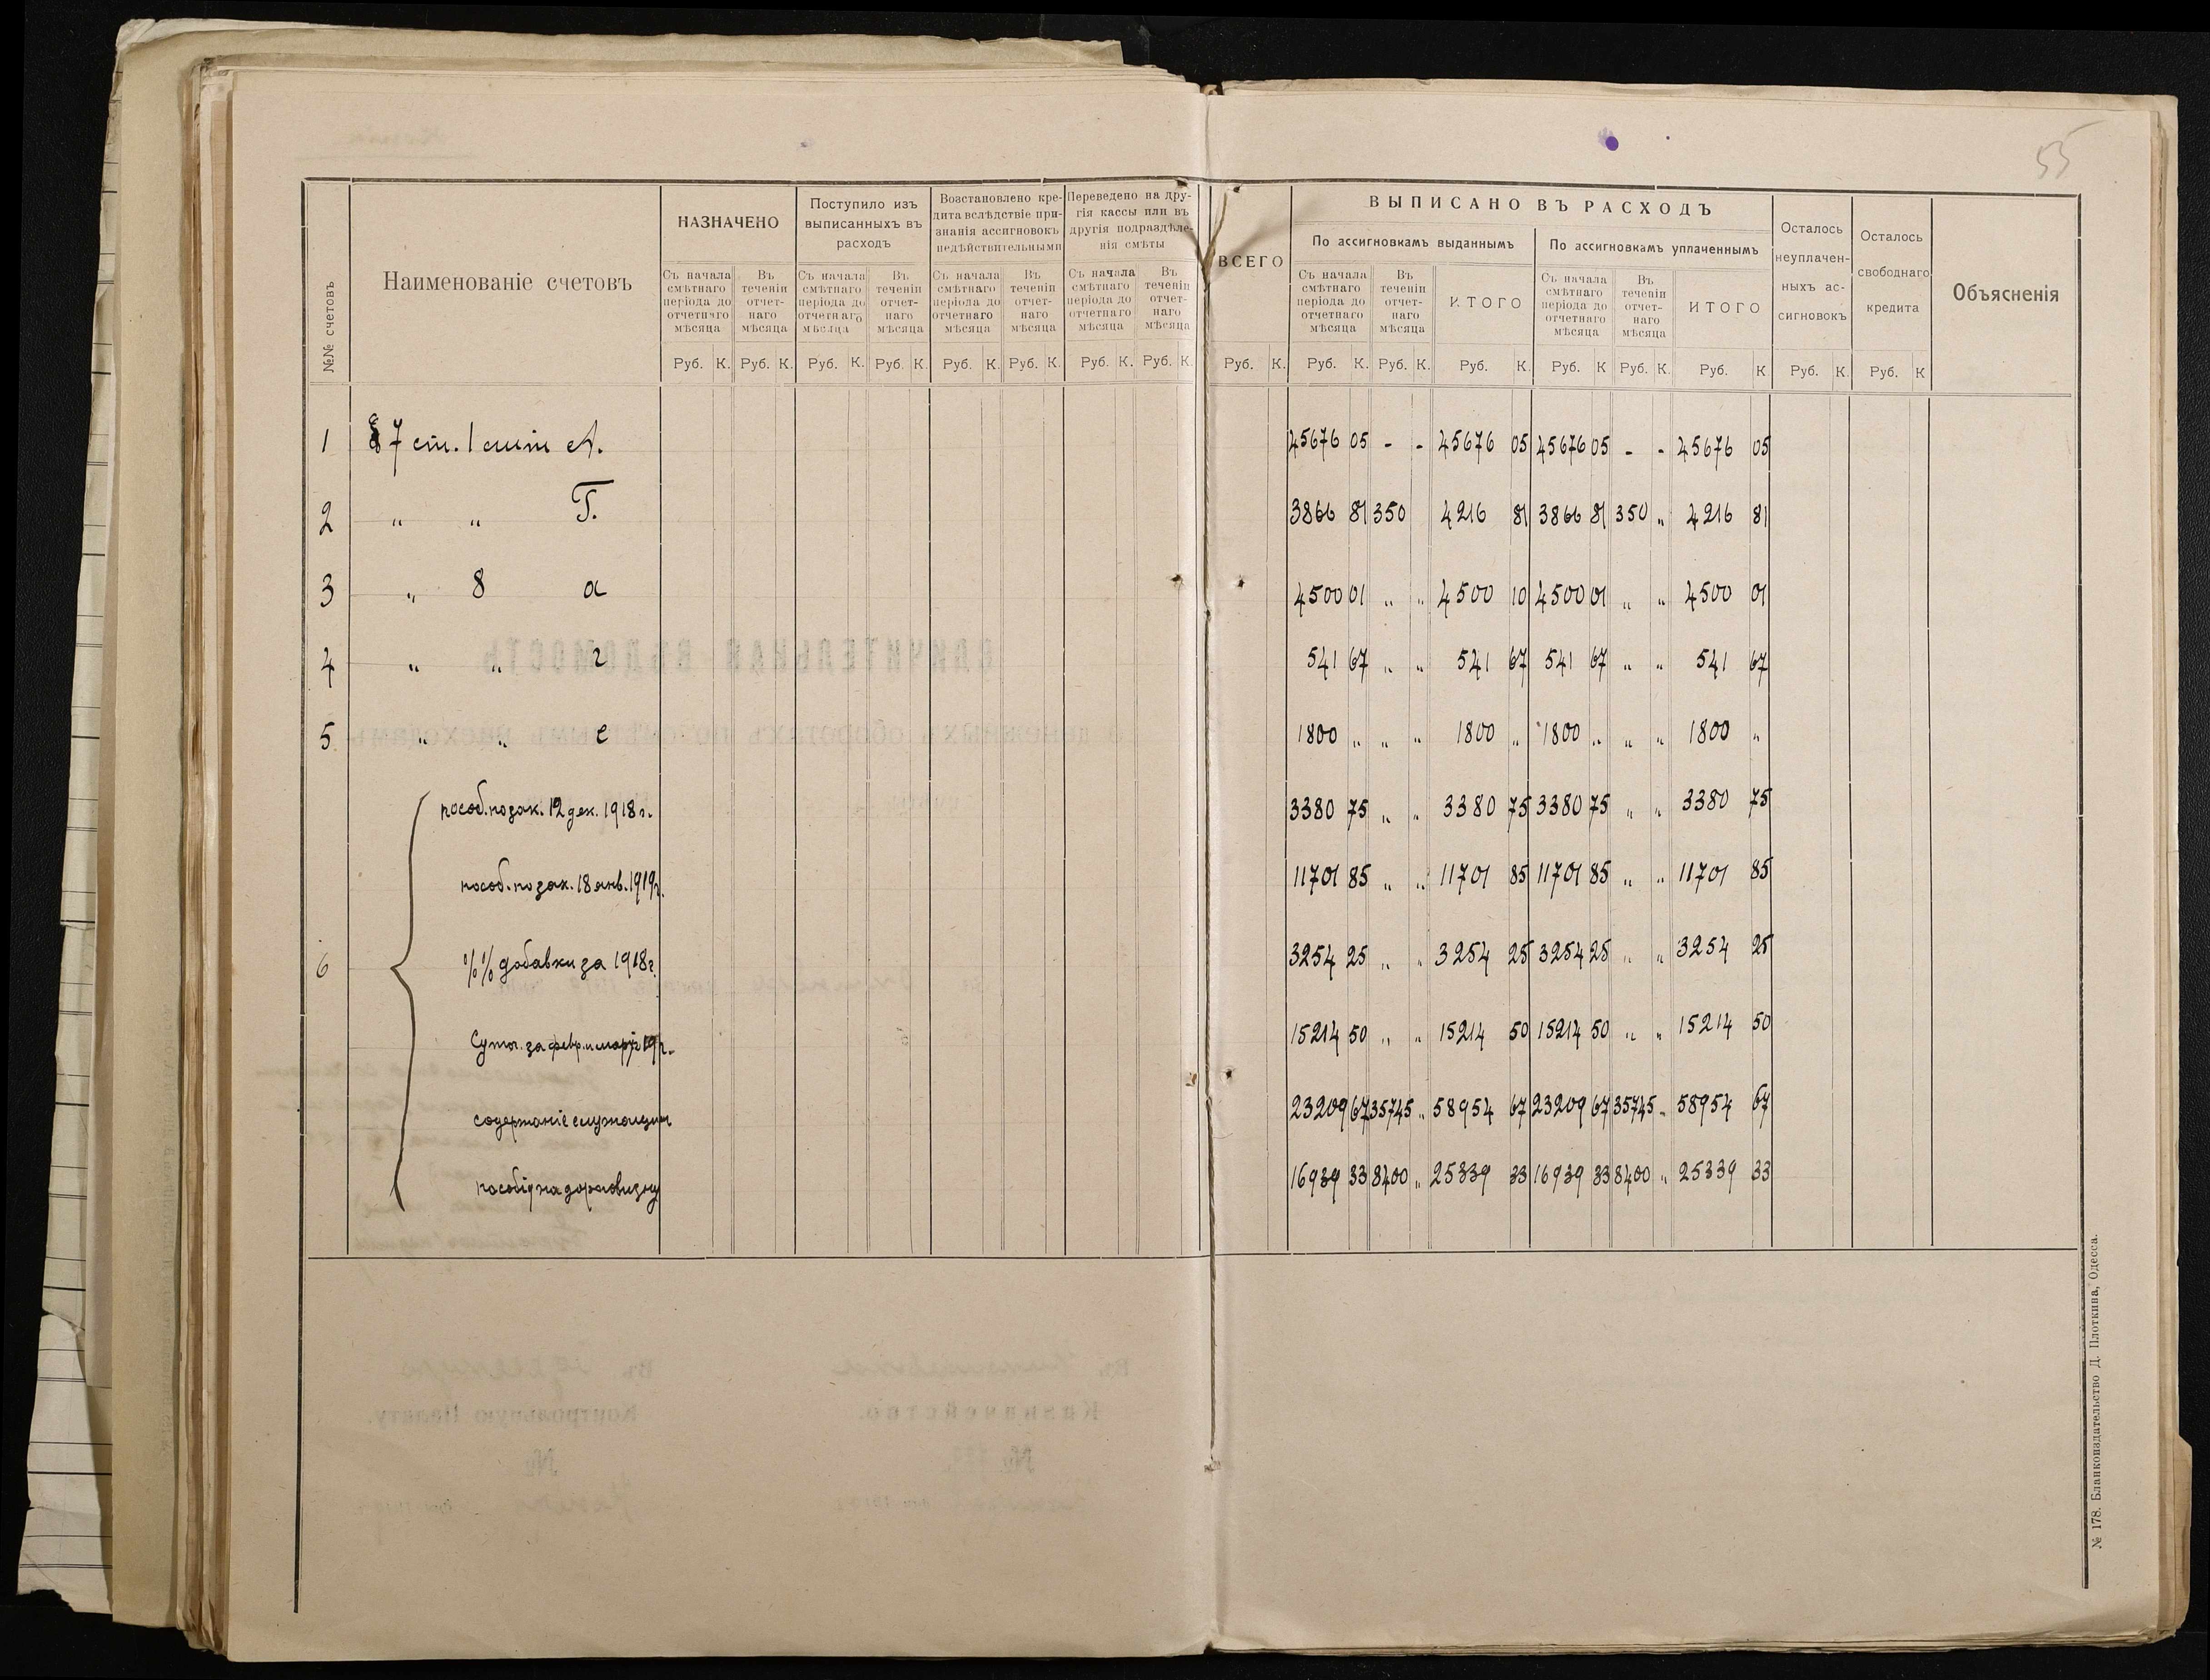 55
№№ счетовъ
Наименованіе счетовъ
НАЗНАЧЕНО
Поступило изъ выписанныхъ въ расходъ
Возстановлено кредита вслѣдствіе признанія ассигновокъ недѣйствительными
Переведено на другія кассы или въ другія подраздѣленія смѣты
ВСЕГО
ВЫПИСАНО ВЪ РАСХОДЪ
По ассигновкамъ выданнымъ
По ассигновкамъ уплаченнымъ
Осталось неуплаченныхъ ассигновокъ
Осталось свободнаго кредита
Объясненія
Съ начала смѣтнаго періода до отчетнаго мѣсяца
Въ теченіи отчетнаго мѣсяца
Съ начала смѣтнаго періода до отчетнаго мѣсяца
Въ теченіи отчетнаго мѣсяца
Съ начала смѣтнаго періода до отчетнаго мѣсяца
Въ теченіи отчетнаго мѣсяца
Съ начала смѣтнаго періода до отчетнаго мѣсяца
Въ теченіи отчетнаго мѣсяца
Съ начала смѣтнаго періода до отчетнаго мѣсяца
Въ теченіи отчетнаго мѣсяца
ИТОГО
Съ начала смѣтнаго періода до отчетнаго мѣсяца
Въ теченіи отчетнаго мѣсяца
ИТОГО
Руб. К. Руб. К. Руб. К. Руб. К. Руб. К. Руб. К. Руб. К. Руб. К. Руб. К. Руб. К. Руб. К. Руб. К. Руб. К Руб. К. Руб. К Руб. К. Руб. К
1 § 7 ст. 1 лит А. 45676 05 - - 45676 05 45676 05 - - 45676 05
2 " " Г. 3866 81 350 4216 81 3866 81 350 " 4216 81
3 " 8 а 4500 01 " " 4500 10 4500 01 " " 4500 01
4 " " г 541 67 " " 541 67 541 67 " " 541 67
5 " " е 1800 " " " 1800 " 1800 " " " 1800 "
пособ. по зак. 12 дек. 1918 г. 3380 75 " " 3380 75 3380 75 " " 3380 75
пособ. по зак. 18 янв. 1919 г. 11701 85 " " 11701 85 11701 85 " " 11701 85
6 %% добавки за 1918 г. 3254 25 " " 3254 25 3254 25 " " 3254 25
Суточ. за февр. и мартъ 19 г. 15214 50 " " 15214 50 15214 50 " " 15214 50
содержаніе служащим 23209 67 35745 " 58954 67 23209 67 35745 " 58954 67
пособія на дороговизну 16939 33 8400 " 25339 33 16939 33 8400 " 25339 33
№ 178. Бланкоиздательство Д. Плоткина, Одесса.